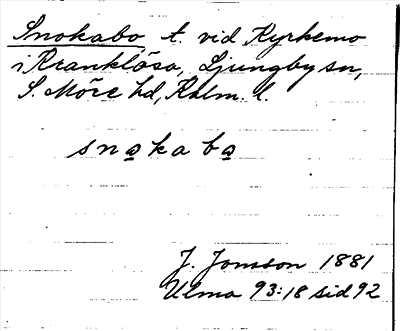 Snokabo t. vid Kyrkemo
i Kranklösa, Ljungby sn,
S. Möre hd, Kalm. l.
sno̲kabo̲
J. Jonsson 1881
Ulma 93:18 sid 92